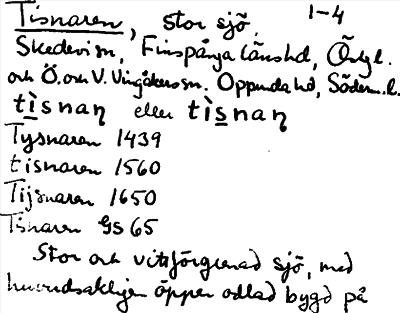 Tisnaren, stor sjö, 1-4
Skedevi sn, Finspånga länshd, Östgl.
och Ö. och V. Vingåkers sn. Oppunda hd, Söderm. l.
tìsnaɳ eller tìsnaɳ
Tysnaren 1439
tisnaren 1560
Tijsnaren 1650
Tisnaren GS 65
Stor och vittförgrenad sjö, med
huvudsakligen öppen odlad bygd på